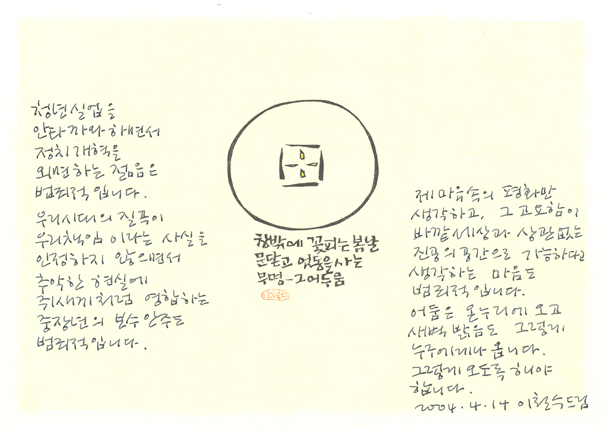 청년실업을
안타까와 하면서
정치개혁을
외면하는 젊음은
범죄적입니다.
우리시대의 질곡이
우리책임이라는 사실을
인정하지 않으면서
추악한 현실에
쥐새끼처럼 영합하는
중장년의 보수안주도
범죄적입니다.
창밖에 꽃피는 봄날
문닫고 어둠을 사는
무명-그 어두움
제 마음속의 평화만
생각하고, 그 고요함이
바깥세상과 상관없는
진공의 공간으로 가능하다고
생각하는 마음도
범죄적입니다.
어둠은 온누리에 오고
새벽 밝음도 그렇게
누구에게나 옵니다.
그렇게 오도록 해야
합니다.
2004.4.14 이철수드림